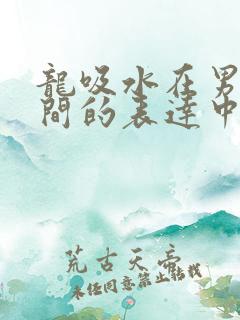 龍吸水在男
間的表達中
荒古天帝
未经同意禁止转载